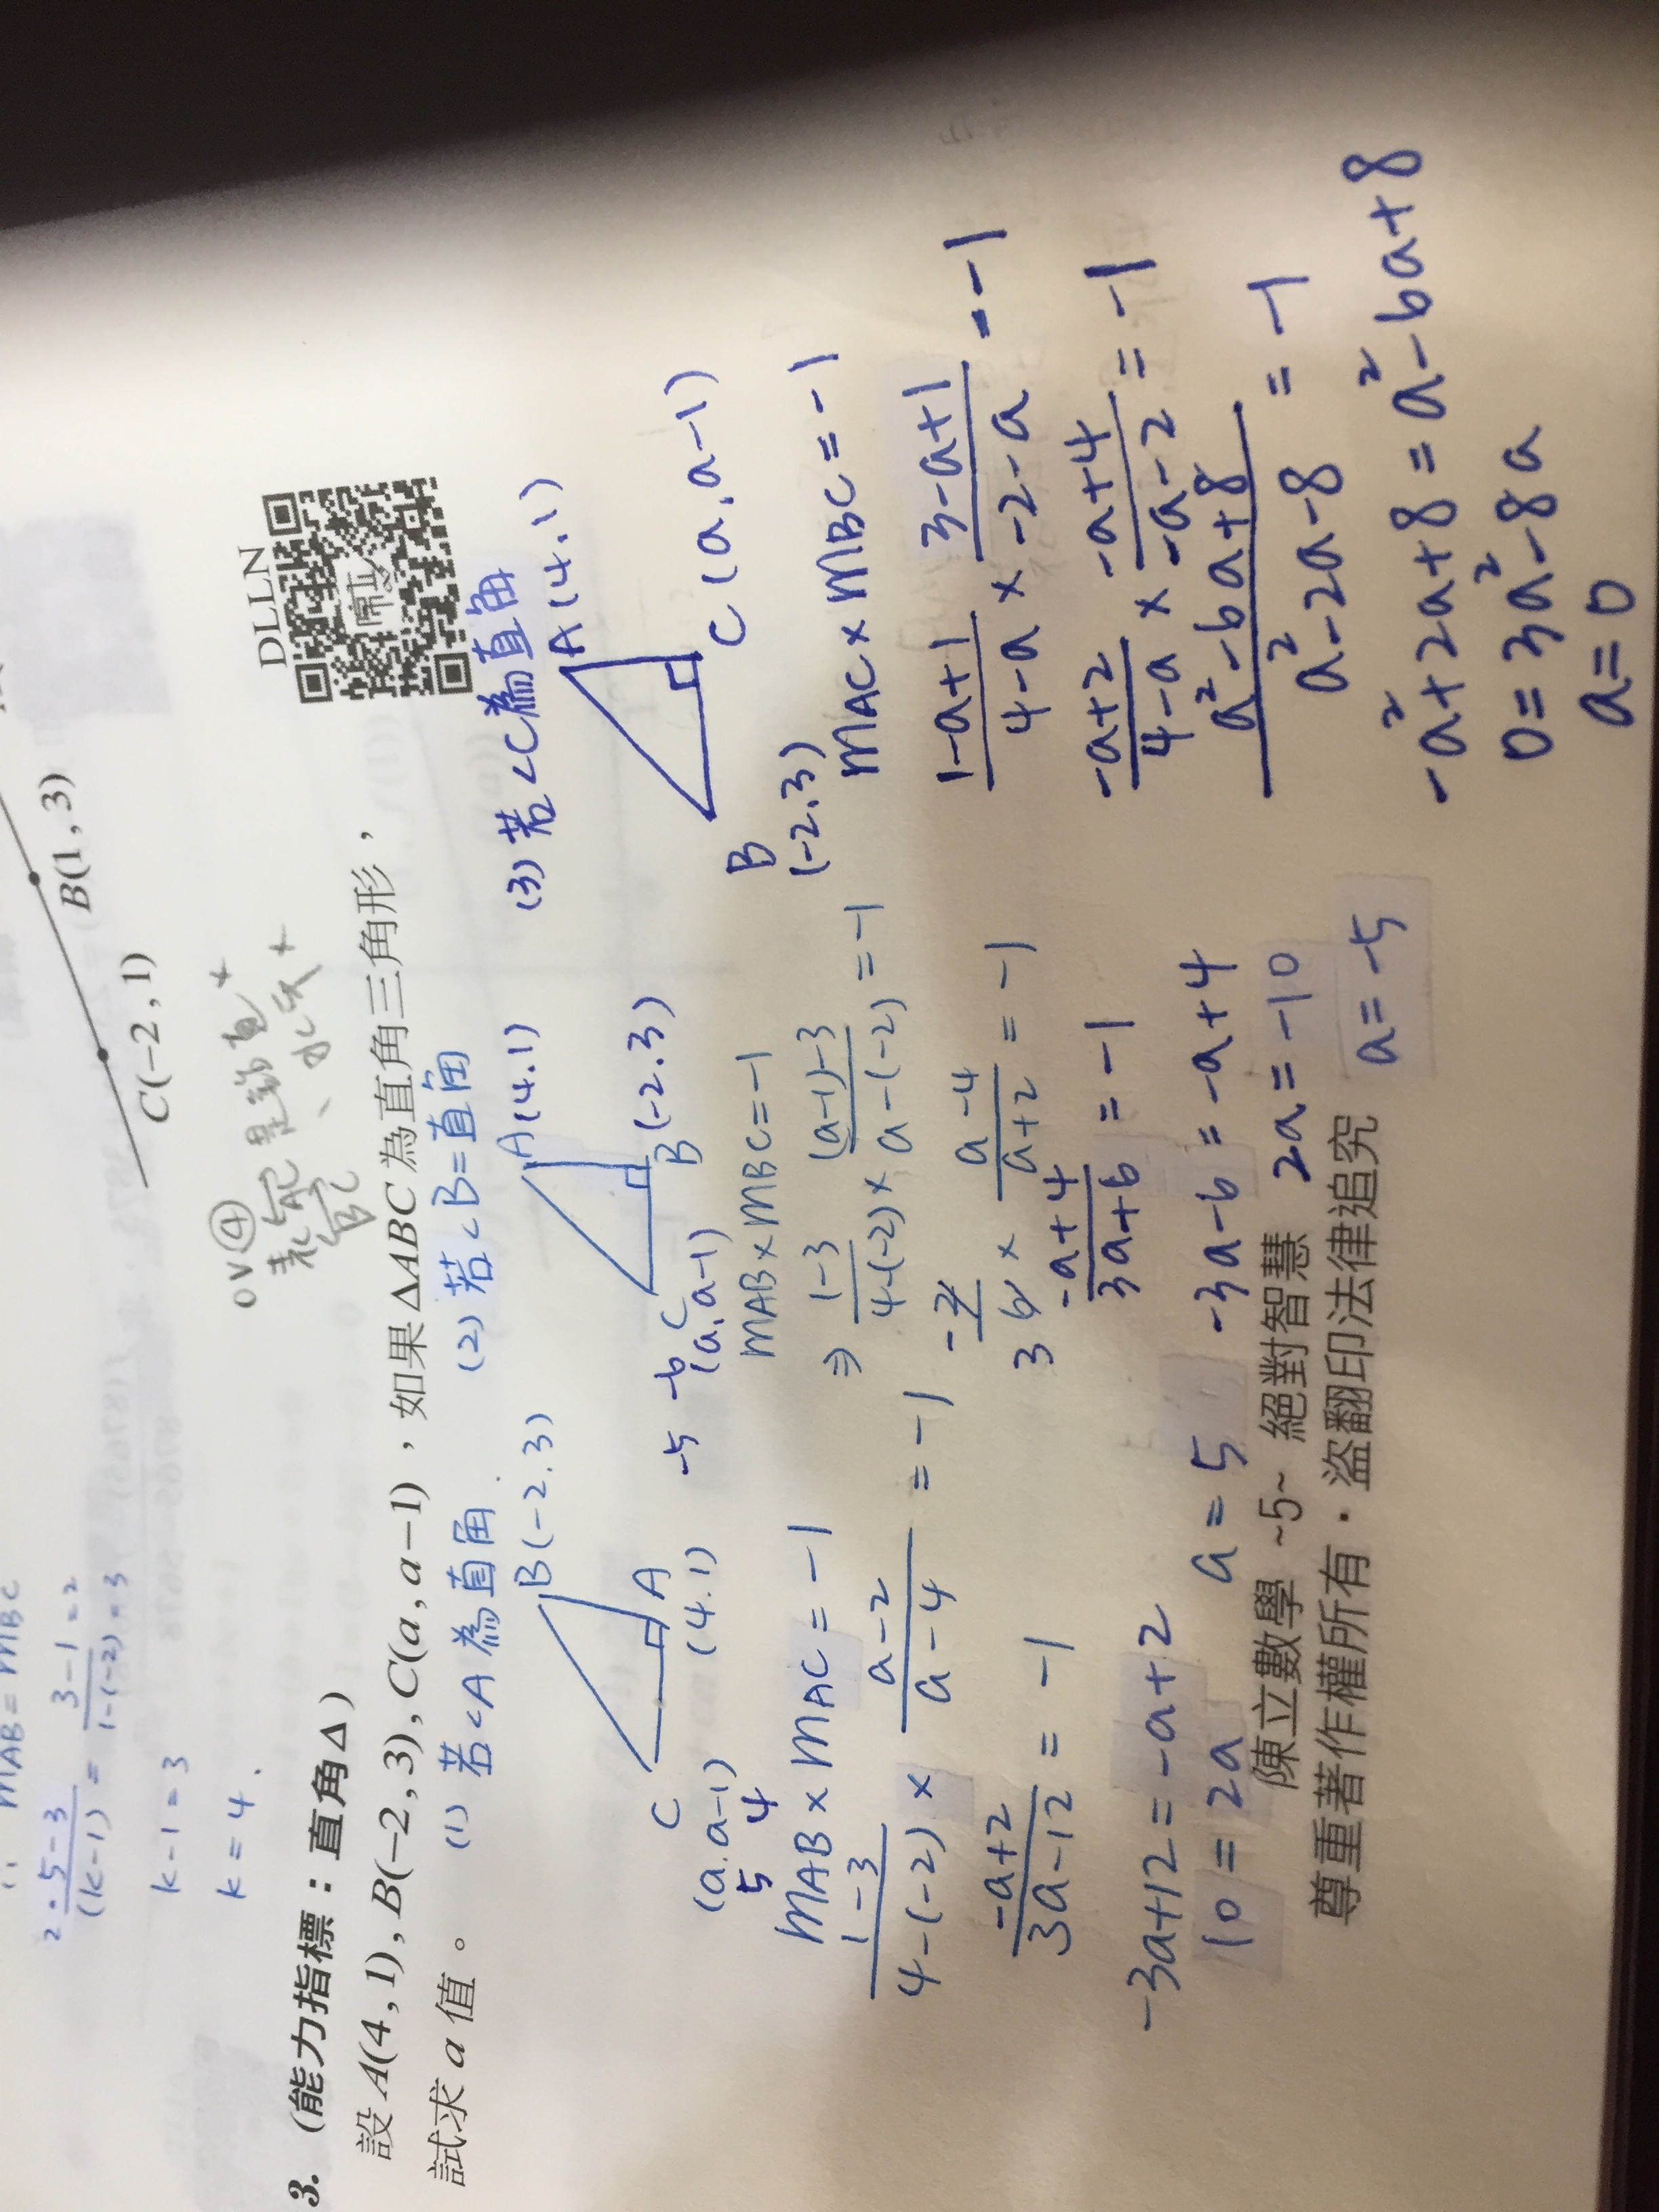 C(−2 , 1)
B(1 , 3)
DLLN
∴ mAB = mBC
5−3
(k−1) = 3−1 = 2
1−(−2) = 3
k−1 = 3
k = 4.
ov④
3. (能力指標：直角△)
設 A(4 , 1), B(−2 , 3), C(a , a−1)，如果△ABC 為直角三角形，
試求 a 值。
(1) 若<A 為直角
B(−2.3)
C
(a.a−1)
5 4
A
(4.1)
mAB × mAC = −1
1−3
4−(−2) × a−2
a−4 = −1
−a+2
3a−12 = −1
−3a+12 = −a+2
10 = 2a
a = 5
(2) 若<B=直角
A(4.1)
−5 −6
C
(a,a−1)
B(−2.3)
mAB×mBC=−1
⇒ 1−3
4−(−2) × (a−1)−3
a−(−2) = −1
−2
3 6 × a−4
a+2 = −1
−a+4
3a+6 = −1
−3a−6 = −a+4
2a = −10
a = −5
(3) 若<C為直角
A(4.1)
B
(−2.3)
C(a,a−1)
mAC×mBC=−1
1−a+1
4−a × 3−a+1
−2−a = −1
−a+2
4−a × −a+4
−a−2 = −1
a²−6a+8
a²−2a−8 = −1
−a²+2a+8 = a²−6a+8
0 = 3a²−8a
a = 0
陳立數學 ~5~ 絕對智慧
尊重著作權所有．盜翻印法律追究